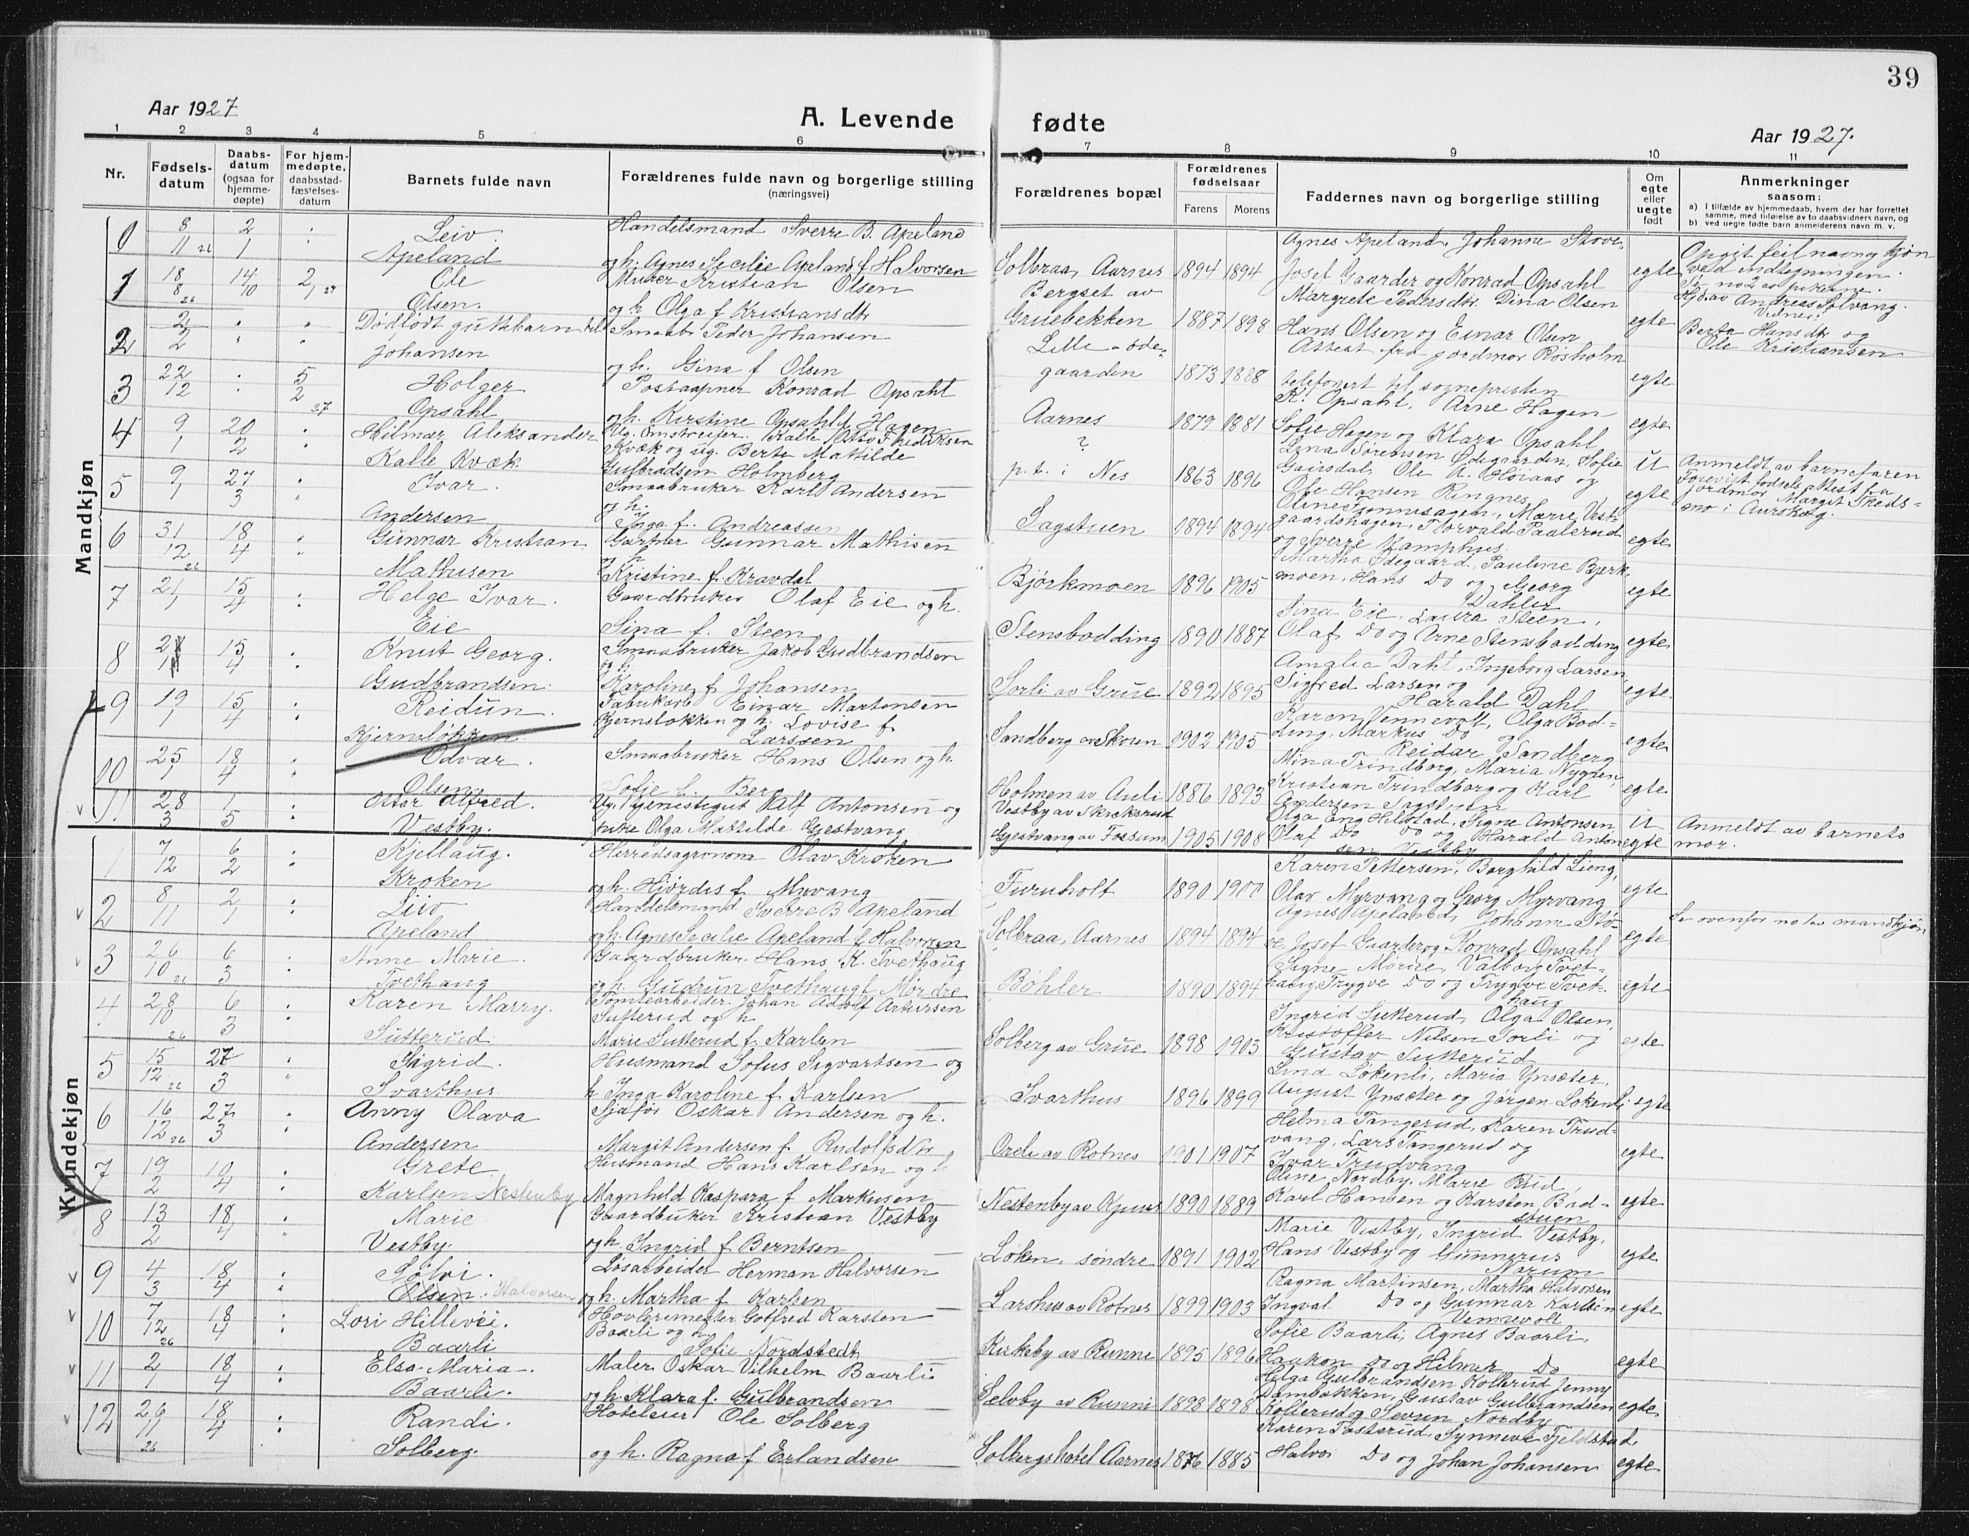 39
Aar 1927
A. Levende fødte
Aar 1927.
1 2 3 4 5 6 7 8 9 10 11
Nr.
Fødsels-datum
Daabs-datum (ogsaa for hjemme-døpte)
For hjem-medøpte, daabsstad-fæstelses-datum
Barnets fulde navn
Forældrenes fulde navn og borgerlige stilling (næringsvei)
Forældrenes bopæl
Forældrenes fødselsaar
Farens Morens
Faddernes navn og borgerlige stilling
Om egte eller uegte født
Anmerkninger saasom:
a) I tilfælde av hjemmedaab, hvem der har forrettet samme, med tilføielse av to daabsvidners navn, og
b) ved uegte fødte barn anmelderens navn m. v.
Mandkjøn
0 8/11 26 2/1 Leiv Handelsmand Sverre B. Apeland Agnes Apeland, Johanne Stove- Opgit feil navn og kjøn
Apeland og h. Agnes Secilie Apeland f. Halvorsen Solbraa, Aarnes 1894 1894 Josef Gaarder og Konrad Opsahl egte ved indtegningen.
1 18/8 26 14/10 2/1 27 Ole Murer Kristian Olsen Bergset av Margrete Pedersdtr Dina Olsen Se no 2 av pikerne.
Olsen. og h. Olga f. Kristiansdtr Gruebekken 1887 1898 Hans Olsen og Einar Olsen egte Hjdøv Andreas Alvang. Vidner:
2 2/2 Dødfødt guttebarn Smaabr Peder Johansen Lille-øde- Attest fra jordmor Røsholm Berte Hansdtr og
Johansen og h. Gina f Olsen gaarden 1873 1888 telefonert til sognepresten egte Ole Kristiansen
3 22/12 5/2 27 Holger Postaapner Konrad Opsahl K. Opsahl. Arne Hagen
Opsahl og h. Kirstine Opsahl f Hagen Aarnes 1879 1881 Sofie Hagen og Klara Opsahl egte
4 9/1 20/2 Hilmar Aleksander Ug. Omstreifer. Kalle Otto Fredriksen ? Lena Sørensen Ødegaarden, Sofie
Kalle Kvæk. Kvæk og ug. Berte Matilde Gulbradsen Holmberg p. t. i Nes 1863 1896 Gairsdal, Ole A. Høiaas og Ole Hansen Ringnes u Anmeldt av barnefaren
5 9/1 27/3 Ivar. Smaabruker Karl Andersen Forevist fødselsattest fra
Andersen og h. Inga f. Andreassen Sagstuen 1894 1894 gaardshagen, Torvald Paalerud og Sverre Kamphus egte jordmor Margit Skeds-mo i Aurskog.
6 31/12 26 18/4 Gunnar Kristian Gartner Gunnar Mathisen Martha Ødegaard, Pauline Bjerk-
Mathisen og h. Kristine f. Kravdal Bjørkmoen 1896 1905 moen, Hans Do og Georg Dahler egte
7 21/1 15/4 Helge Ivar. Gaardbruker Olaf Eie og h. Sina Eie, Laura Steen,
Eie Sina f. Steen Stensbødding 1890 1887 Olaf Do og Arne Stensbødding egte
8 15/4 Knut Georg. Smaabruker Jakob Gudbrandsen Amalie Dahl, Ingeborg Larsen
Gudbrandsen. og h. Karoline f. Johansen Sorli av Grue 1892 1895 Sigfred Larsen og Harald Dahl egte
9 19/1 15/4 Reidun. Fabrikarb Einar Martensen Karen Vennevolt, Olga Bød-
Kjernsløkken Kjernsløkken og h. Lovise f Larssen Sandberg av Skoien 1902 1905 ding, Markus Do og Reidar Sandberg egte
10 25/1 18/4 Odvar. Smaabruker Hans Olsen og h. Mina Trindborg, Maria Nygren,
Olsen Sofie f. Berg Holmen av Auli 1886 1893 Kristian Trindborg og Karl Andersen Sagstuen egte
11 28/3 1/5 Otto Alfred. Ug. Tjenestegut Alf Antonsen og Vestby av Skreksrud Olga Eng Hilstad, Signe Antonsen u Anmeldt av barnets
Vestby. pike Olga Mathilde Gjestvang Gjestvang av Fossum 1905 1908 Olaf Do Do og Harald Anton-sen Vestby egte mor.
Kvindekjøn
1 7/12 6/2 Kjellaug. Herredsagronom Olav Kroken Karen Pettersen, Borghild Lieng,
Kroken og h. Hjørdis f Myrvang Furuholt 1890 1900 Olav Myrvang og Georg Myrvang egte
2 8/11 2/1 Liv Handelsmand Sverre B Apeland Agnes Apeland, Johanne Sto- Se ovenfor no 1 av mandkjøn
Apeland og h. Agnes Secilie Apeland f. Halvorsen Solbraa, Aarnes 1894 1894 ve Josef Gaarder og Konrad Opsahl egte
3 26/10 26 6/3 Anne Marie. Gaardbruker. Hans K. Tvethaug Signe Mørue, Valborg Tvet-
Tvethaug og h. Gudrun Tvethaug f Mordre Bøhler 1890 1894 haug Trygve Do og Trygve Tvet-haug egte
4 28/10 26 6/3 Karen Marry. Tomtearbeider. Johan Adolf Antersen Ingrid Sutterud, Olga Olsen,
Sutterud. Sutterud og h Marie Sutterud f. Karlsen Solberg av Grue 1898 1903 Kristoffer Nilsen Sorli og Gustav Sutterud egte
5 15/12 26 27/3 Sigrid. Husmand Sofus Sigvartsen og Lina Løkenli, Maria Ynsæter,
Svarthus h Inga Karoline f Karlsen Svarthus 1896 1899 August Ynsæter og Jørgen Lokenli egte
6 16/12 26 27/3 Anny Olava Sjafør Oskar Andersen og h. Helma Tangerud, Karen Trud-
Andersen Margit Andersen f. Rudolfsdtr Oreli av Rotnes 1901 1907 vang, Lars Tangerud og Ivar Trudvang egte
7 19/2 10/4 Grete. Husmand Hans Karlsen og Oline Nordby, Marie Bud,
Karlsen Nestenby Magnhild Kaspara f Markusen Nestenby av Kjuus 1890 1889 Karl Hansen og Karsten Bud-stuen egte
8 13/2 18/4 Marie Gaardbruker Kristian Vestby Marie Vestby, Ingrid Vestby,
Vestby. og h. Ingrid f Berntsen Loken, søndre 1891 1902 Hans Vestby og Gunnerus Narum egte
9 4/3 18/4 Sølvi. Løsarbeider Herman Halvorsen Ragna Martinsen, Martha Halvorsen
Olsen. Halvorsen og h. Martha f Karlsen Larshus av Rotnes 1899 1903 Ingval Do og Gunnar Karlsen Vennevolt egte
10 7/12 26 18/4 Lori Hillevei. Høvlerimester Gotfred Karsten Sofie Baarli, Agnes Baarli,
Baarli Baarli og h. Sofie Nordstedt Kirkeby av Runni 1895 1896 Haakon Do og Hilmar Do egte
11 2/1 18/4 Elsa Maria. Maler Oskar Vilhelm Baarli Helga Gulbrandsen Kollerud Jenny
Baarli. og h. Klara f. Gulbrandsen Selvby av Runni 1898 1898 Dambakken, Gustav Gulbrandsen Kollerud og Severin Nordby egte
12 26/11 26 18/4 Randi. Hoteleier Ole Solberg Karen Fosterud, Synneve Fjeldstad
Solberg. og h. Ragna f Erlandsen Solbergs hotel Aarnes 1876 1885 Halvor Do og Johan Johansen egte